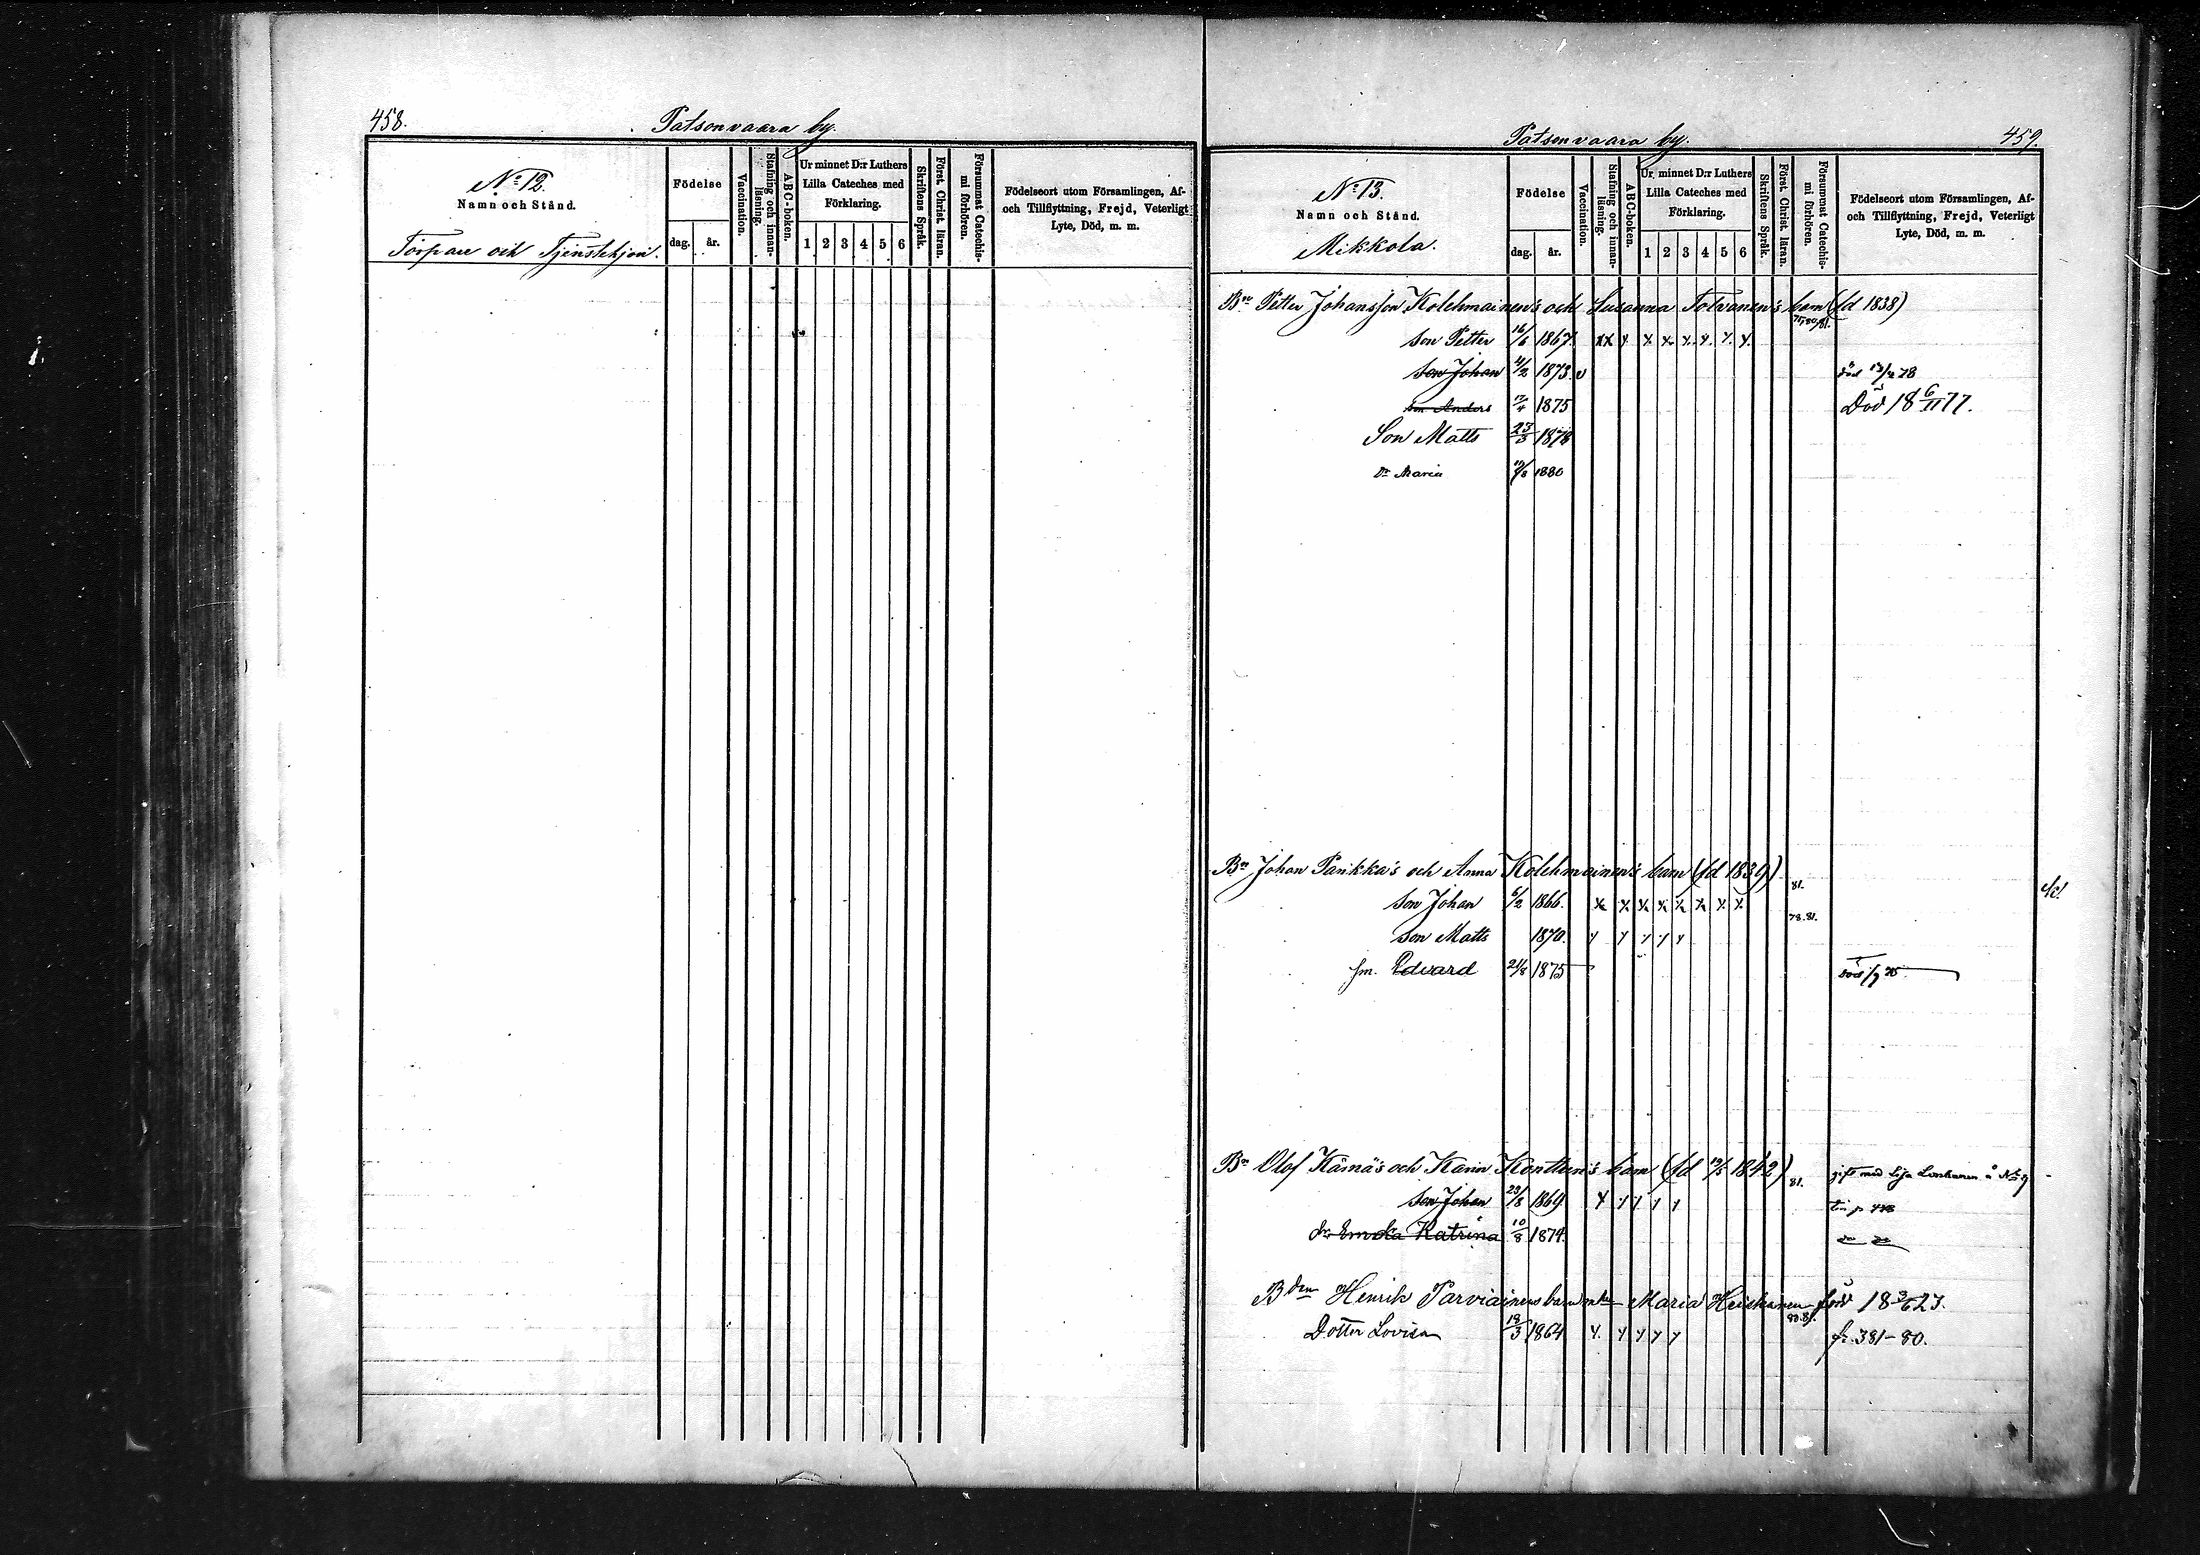 458.
Patsonvaara by.
No 12.
Namn och Stånd.
Torpare och Tjenstehjon.
Födelse
dag. år.
Vaccination.
Stafning och innanläsning.
ABC-boken.
Ur minnet D:r Luthers Lilla Cateches med Förklaring.
1 2 3 4 5 6
Skriftens Språk.
Först. Christ. läran.
Försummat Catechismi förhören.
Födelseort utom Församlingen, Af- och Tillflyttning, Frejd, Veterligt Lyte, Död, m. m.
Patsonvaara by.
459.
No 13.
Namn och Stånd.
Mikkola.
Födelse
dag. år.
Vaccination.
Stafning och innanläsning.
ABC-boken.
Ur minnet D:r Luthers Lilla Cateches med Förklaring.
1 2 3 4 5 6
Skriftens Språk.
Först. Christ. läran.
Försummat Catechismi förhören.
Födelseort utom Församlingen, Af- och Tillflyttning, Frejd, Veterligt Lyte, Död, m. m.
Bn Petter Johansson Kolehmainen's och Susanna Tolvanen's barn (fd 1838)
Son Petter 16/6 1867. xx x x x x x x x
Son Johan 1873. v död 78
son Anders 1875 Död 18 6/11 77.
Son Matts 23/3 1878
Dr Maria 1880
Bn Johan Pankka's och Anna Kolehmainen's barn (fd 1839) 81.
Son Johan 6/2 1866. x x x x x x x x 78.81.
Son Matts 1870. x x x x x
sm. Edvard 21/8 1875 död 1/9 75
Bn Olof Kärnä's och Karin Konttun's barn (fd 1842) 81. gift med Lisa å No 9
Son Johan 23/8 1869 x x x x x
dr Katrina 10/8 1874.
Bden Henrik Parviainens barn Maria Heiskanen född 18 3/6 27. 80.81.
Dotter Lovisa 18/3 1864 x x x x x fr. 381-80.